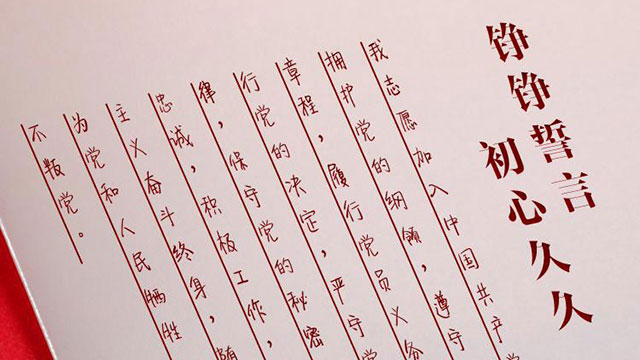 铮铮誓言
初心久久
我志愿加入中国共产
拥护党的纲领，遵守
章程，履行党员义务
行党的决定，严守党
律，保守党的秘密
忠诚，积极工作，
主义奋斗终身，随
为党和人民牺牲
不叛党。